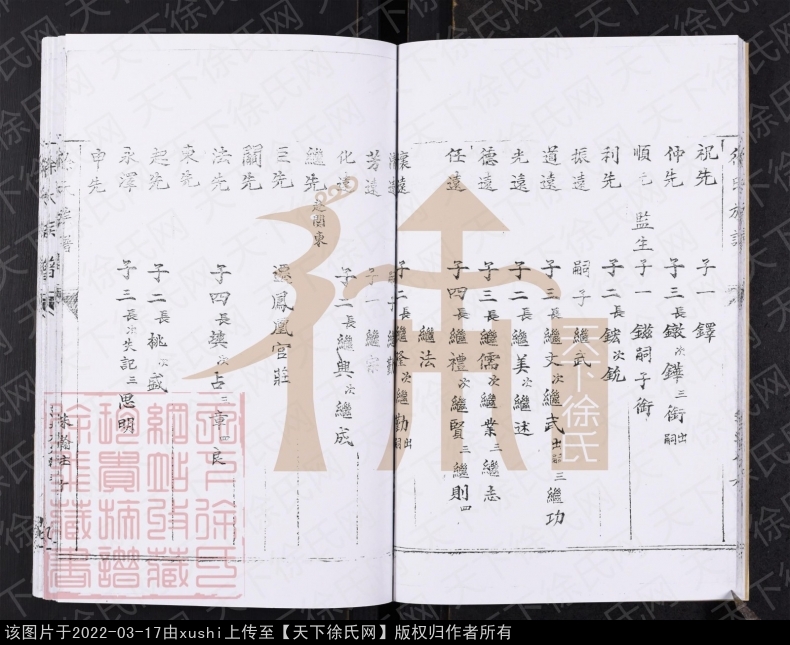 徐氏族譜
祝先 子一 鐸
仲先 子三 長鐓 次鏵 三銜 出嗣
順 監生 子一 鎡 嗣子銜
利先 子二 長鋐 次銃
振遠 嗣子 繼武
道遠 子三 長繼文 次繼武 出嗣 三繼功
光遠 子二 長繼美 次繼述
德遠 子三 長繼儒 次繼業 三繼志
任遠 子四 長繼禮 次繼賢 三繼則 四
繼法
懷遠 子二 長繼 次繼勤 出嗣
芳遠 子一 繼
化遠 子二 長繼興 次繼成
繼先 關東
臣先 鳳凰官莊
嗣先
法先 子四 長 次古 三章 四良
東先
起先 子二 長桃 次盛
永澤 子三 長 次失記 三思明
申先
徐氏族譜
天下徐氏
天下徐氏网
天下徐氏
網站收藏
珍貴族譜
徐集藏書
该图片于2022-03-17由xushi上传至【天下徐氏网】版权归作者所有